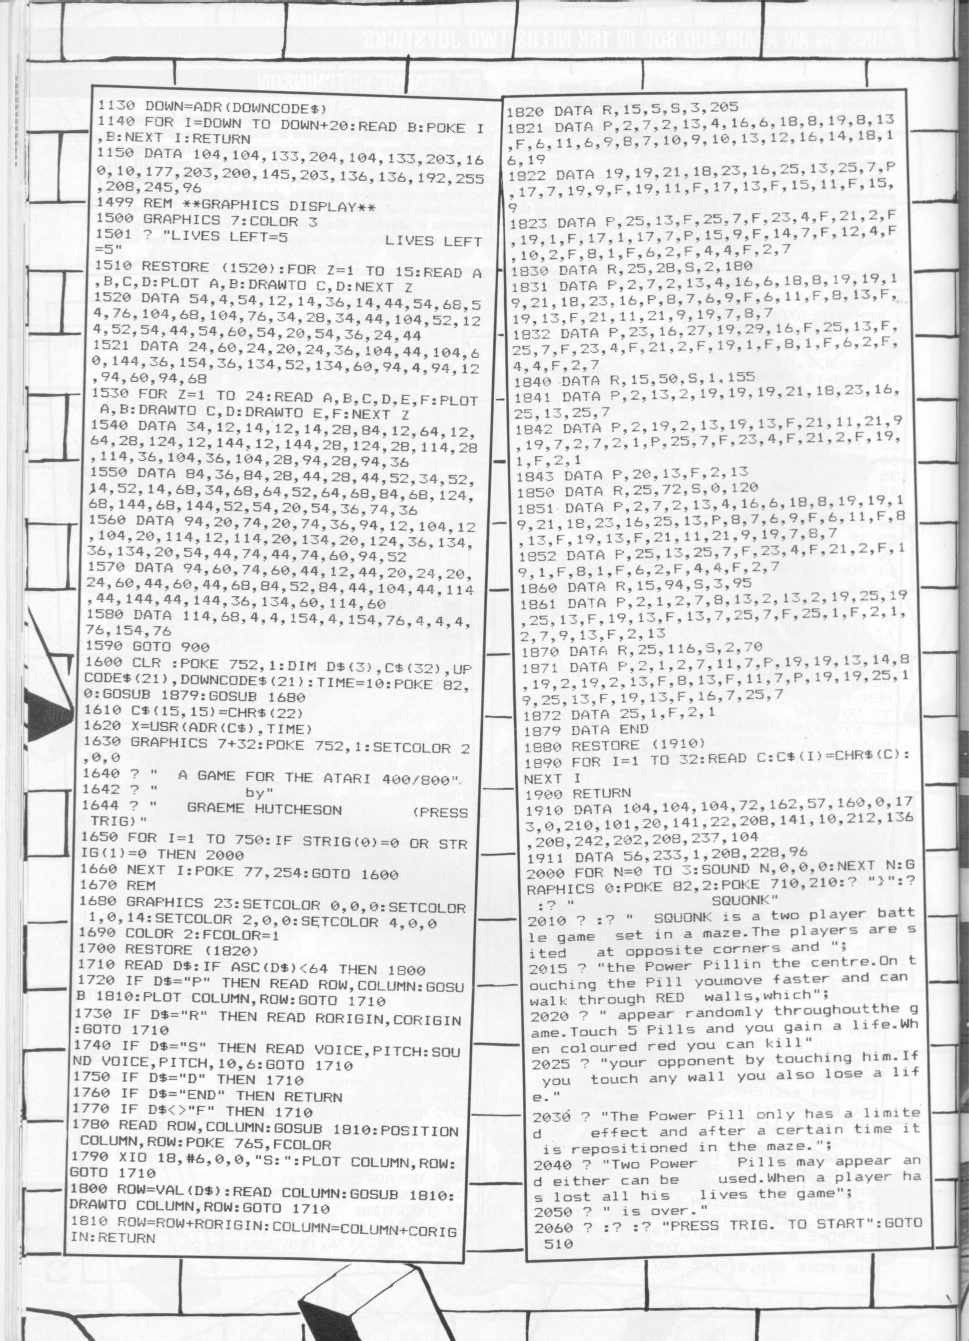 1130 DOWN=ADR(DOWNCODE$)
1140 FOR I=DOWN TO DOWN+20:READ B:POKE I
,B:NEXT I:RETURN
1150 DATA 104,104,133,204,104,133,203,16
0,10,177,203,200,145,203,136,136,192,255
,208,245,96
1499 REM **GRAPHICS DISPLAY**
1500 GRAPHICS 7:COLOR 3
1501 ? "LIVES LEFT=5          LIVES LEFT
=5"
1510 RESTORE (1520):FOR Z=1 TO 15:READ A
,B,C,D:PLOT A,B:DRAWTO C,D:NEXT Z
1520 DATA 54,4,54,12,14,36,14,44,54,68,5
4,76,104,68,104,76,34,28,34,44,104,52,12
4,52,54,44,54,60,54,20,54,36,24,44
1521 DATA 24,60,24,20,24,36,104,44,104,6
0,144,36,154,36,134,52,134,60,94,4,94,12
,94,60,94,68
1530 FOR Z=1 TO 24:READ A,B,C,D,E,F:PLOT
A,B:DRAWTO C,D:DRAWTO E,F:NEXT Z
1540 DATA 34,12,14,12,14,28,84,12,64,12,
64,28,124,12,144,12,144,28,124,28,114,28
,114,36,104,36,104,28,94,28,94,36
1550 DATA 84,36,84,28,44,28,44,52,34,52,
14,52,14,68,34,68,64,52,64,68,84,68,124,
68,144,68,144,52,54,20,54,36,74,36
1560 DATA 94,20,74,20,74,36,94,12,104,12
,104,20,114,12,114,20,134,20,124,36,134,
36,134,20,54,44,74,44,74,60,94,52
1570 DATA 94,60,74,60,44,12,44,20,24,20,
24,60,44,60,44,68,84,52,84,44,104,44,114
,44,144,44,144,36,134,60,114,60
1580 DATA 114,68,4,4,154,4,154,76,4,4,4,
76,154,76
1590 GOTO 900
1600 CLR :POKE 752,1:DIM D$(3),C$(32),UP
CODE$(21),DOWNCODE$(21):TIME=10:POKE 82,
0:GOSUB 1879:GOSUB 1680
1610 C$(15,15)=CHR$(22)
1620 X=USR(ADR(C$),TIME)
1630 GRAPHICS 7+32:POKE 752,1:SETCOLOR 2
,0,0
1640 ? "  A GAME FOR THE ATARI 400/800"
1642 ? "          by"
1644 ? "   GRAEME HUTCHESON       (PRESS
TRIG)"
1650 FOR I=1 TO 750:IF STRIG(0)=0 OR STR
IG(1)=0 THEN 2000
1660 NEXT I:POKE 77,254:GOTO 1600
1670 REM
1680 GRAPHICS 23:SETCOLOR 0,0,0:SETCOLOR
1,0,14:SETCOLOR 2,0,0:SETCOLOR 4,0,0
1690 COLOR 2:FCOLOR=1
1700 RESTORE (1820)
1710 READ D$:IF ASC(D$)<64 THEN 1800
1720 IF D$="P" THEN READ ROW,COLUMN:GOSU
B 1810:PLOT COLUMN,ROW:GOTO 1710
1730 IF D$="R" THEN READ RORIGIN,CORIGIN
:GOTO 1710
1740 IF D$="S" THEN READ VOICE,PITCH:SOU
ND VOICE,PITCH,10,6:GOTO 1710
1750 IF D$="D" THEN 1710
1760 IF D$="END" THEN RETURN
1770 IF D$<>"F" THEN 1710
1780 READ ROW,COLUMN:GOSUB 1810:POSITION
COLUMN,ROW:POKE 765,FCOLOR
1790 XIO 18,#6,0,0,"S:":PLOT COLUMN,ROW:
GOTO 1710
1800 ROW=VAL(D$):READ COLUMN:GOSUB 1810:
DRAWTO COLUMN,ROW:GOTO 1710
1810 ROW=ROW+RORIGIN:COLUMN=COLUMN+CORIG
IN:RETURN
1820 DATA R,15,5,S,3,205
1821 DATA P,2,7,2,13,4,16,6,18,8,19,8,13
,F,6,11,6,9,8,7,10,9,10,13,12,16,14,18,1
6,19
1822 DATA 19,19,21,18,23,16,25,13,25,7,P
,17,7,19,9,F,19,11,F,17,13,F,15,11,F,15,
9
1823 DATA P,25,13,F,25,7,F,23,4,F,21,2,F
,19,1,F,17,1,17,7,P,15,9,F,14,7,F,12,4,F
,10,2,F,8,1,F,6,2,F,4,4,F,2,7
1830 DATA R,25,28,S,2,180
1831 DATA P,2,7,2,13,4,16,6,18,8,19,19,1
9,21,18,23,16,P,8,7,6,9,F,6,11,F,8,13,F,
19,13,F,21,11,21,9,19,7,8,7
1832 DATA P,23,16,27,19,29,16,F,25,13,F,
25,7,F,23,4,F,21,2,F,19,1,F,8,1,F,6,2,F,
4,4,F,2,7
1840 DATA R,15,50,S,1,155
1841 DATA P,2,13,2,19,19,19,21,18,23,16,
25,13,25,7
1842 DATA P,2,19,2,13,19,13,F,21,11,21,9
,19,7,2,7,2,1,P,25,7,F,23,4,F,21,2,F,19,
1,F,2,1
1843 DATA P,20,13,F,2,13
1850 DATA R,25,72,S,0,120
1851 DATA P,2,7,2,13,4,16,6,18,8,19,19,1
9,21,18,23,16,25,13,P,8,7,6,9,F,6,11,F,8
,13,F,19,13,F,21,11,21,9,19,7,8,7
1852 DATA P,25,13,25,7,F,23,4,F,21,2,F,1
9,1,F,8,1,F,6,2,F,4,4,F,2,7
1860 DATA R,15,94,S,3,95
1861 DATA P,2,1,2,7,8,13,2,13,2,19,25,19
,25,13,F,19,13,F,13,7,25,7,F,25,1,F,2,1,
2,7,9,13,F,2,13
1870 DATA R,25,116,S,2,70
1871 DATA P,2,1,2,7,11,7,P,19,19,13,14,8
,19,2,19,2,13,F,8,13,F,11,7,P,19,19,25,1
9,25,13,F,19,13,F,16,7,25,7
1872 DATA 25,1,F,2,1
1879 DATA END
1880 RESTORE (1910)
1890 FOR I=1 TO 32:READ C:C$(I)=CHR$(C):
NEXT I
1900 RETURN
1910 DATA 104,104,104,72,162,57,160,0,17
3,0,210,101,20,141,22,208,141,10,212,136
,208,242,202,208,237,104
1911 DATA 56,233,1,208,228,96
2000 FOR N=0 TO 3:SOUND N,0,0,0:NEXT N:G
RAPHICS 0:POKE 82,2:POKE 710,210:? "}":?
:? "              SQUONK"
2010 ? :? "  SQUONK is a two player batt
le game  set in a maze.The players are s
ited   at opposite corners and ";
2015 ? "the Power Pillin the centre.On t
ouching the Pill youmove faster and can
walk through RED  walls,which";
2020 ? " appear randomly throughoutthe g
ame.Touch 5 Pills and you gain a life.Wh
en coloured red you can kill"
2025 ? "your opponent by touching him.If
you  touch any wall you also lose a lif
e."
2030 ? "The Power Pill only has a limite
d     effect and after a certain time it
is repositioned in the maze.";
2040 ? "Two Power    Pills may appear an
d either can be    used.When a player ha
s lost all his   lives the game";
2050 ? " is over."
2060 ? :? :? "PRESS TRIG. TO START":GOTO
510